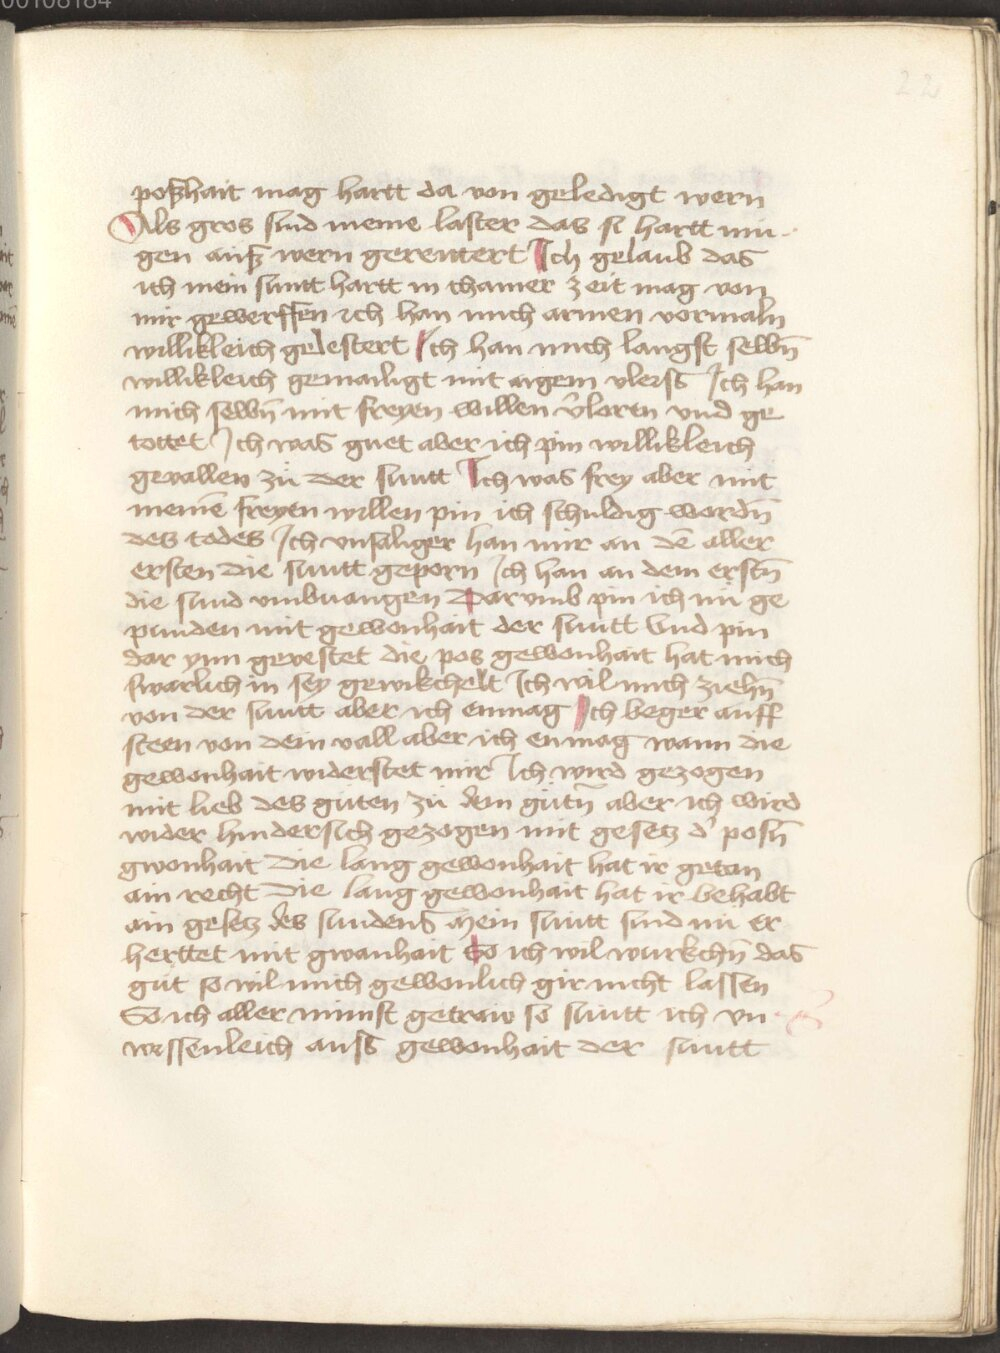 22
poßhait mag hartt da von geledigt wern
Als gros sind meine laster das si hartt mu-
gen auß wern gereutert Ich gelaub das
ich mein suntt hartt in chainer zeit mag von
mir gewerffen ich han mich armen vormaln
willikleich gelestert Ich han mich langst selbn̄
willikleich gemailigt mit aigem vleiss Ich han
mich selbn̄ mit freyen willen v̄lorn und ge
tottet Ich was guet aber ich pin willikleich
gevallen zu der suntt Ich was frey aber mit
meinē freyen willen pin ich schuldig wordn̄
des todes Ich vnsaliger han mir an dē aller
ersten die suntt geporn Ich han an dem erstn̄
die sund vmbuangen Darvmb pin ich nu ge
punden mit gewonhait der suntt Vnd pin
dar ynn gevestet die pos gewonhait hat mich
swarlich in sey gewikchelt Ich wil mich ziehn̄
von der suntt aber ich enmag Ich beger auff
steen von dem vall aber ich enmag wann die
gewonhait widerstet mir Ich wird gezogen
mit lieb des guten zu dem gutn̄ aber ich wird
wider hindersich gezogen mit gesetz d' posn̄
gwonhait Die lang gewonhait hat ir getan
ain recht Die lang gewonhait hat ir behabt
ain gesetz des sundens Mein suntt sind nu er
herttet mit gwanhait So ich wil wurkchn̄ das
gut so wil mich gewonlich gir nicht lassen
So ich aller minst getraw so suntt ich vn
wissenleich auss gewonhait der suntt